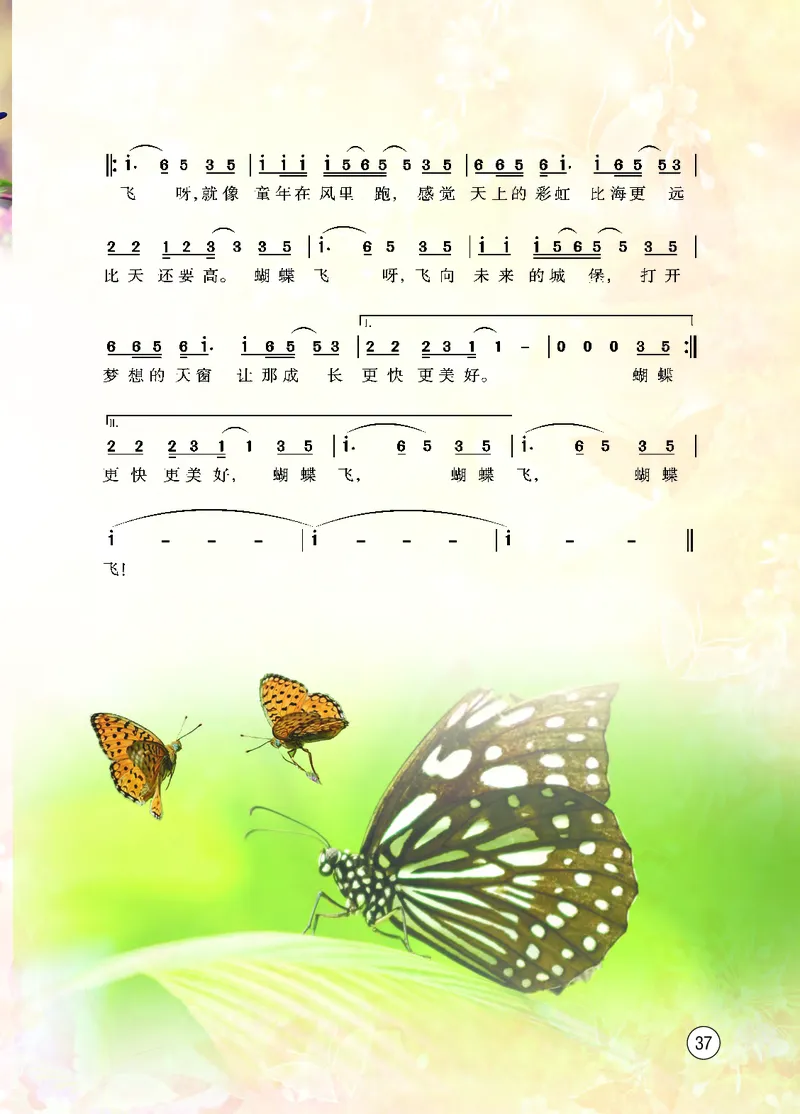 ‖: i· 6 5 3 5 | i i i i 5 6 5 5 3 5 | 6 6 5 6 i· i 6 5 5 3 |
飞 呀,就像 童年在风里 跑, 感觉 天上的彩虹 比海更 远
2 2 1 2 3 3 3 5 | i· 6 5 3 5 | i i i 5 6 5 5 3 5 |
比天 还要高。 蝴蝶 飞 呀,飞向 未来 的城 堡, 打开
I.
6 6 5 6 i· i 6 5 5 3 | 2 2 2 3 1 1 – | 0 0 0 3 5 :‖
梦想的天窗 让那成 长 更快 更美好。 蝴蝶
II.
2 2 2 3 1 1 3 5 | i· 6 5 3 5 | i· 6 5 3 5 |
更快 更美好, 蝴蝶 飞, 蝴蝶 飞, 蝴蝶
i – – – | i – – – | i – – ‖
飞!
37